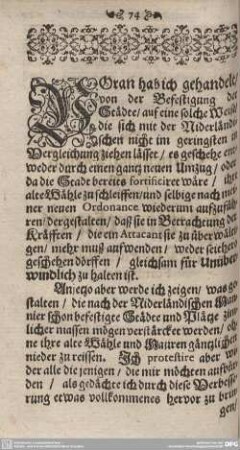 74
VOran hab ich gehandelt/
von der Befestigung der
Städte/ auf eine solche Weise/
die sich mit der Niderländi-
schen nicht im geringsten in
Vergleichung ziehen lässet/ es geschehe ent-
weder durch einen gantz neuen Umzug/ oder
da die Stadt bereits fortificiret wäre/ ihre
alte Wähle zu schleiffen/ und selbige nach mei-
ner neuen Ordonance wiederum aufzufüh-
ren/ dergestalten/ daß sie in Betrachtung der
Kräfften/ die ein Attacant sie zu überwälti-
gen/ mehr muß aufwenden/ weder seithero
geschehen dörffen/ gleichsam für Unüber-
windlich zu halten ist.
Anjetzo aber werde ich zeigen/ was ge-
stalten/ die nach der Niderländischen Ma-
nier schon befestigte Städte und Plätze zim-
licher massen mögen verstärcket werden/ oh-
ne ihre alte Wähle und Mauren gäntzlichen
nieder zu reissen. Ich protestire aber wi-
der alle die jenigen/ die mir möchten aufbür-
den/ als gedächte ich durch diese Verbesse-
rung etwas vollkommenes hervor zu brin-
gen/